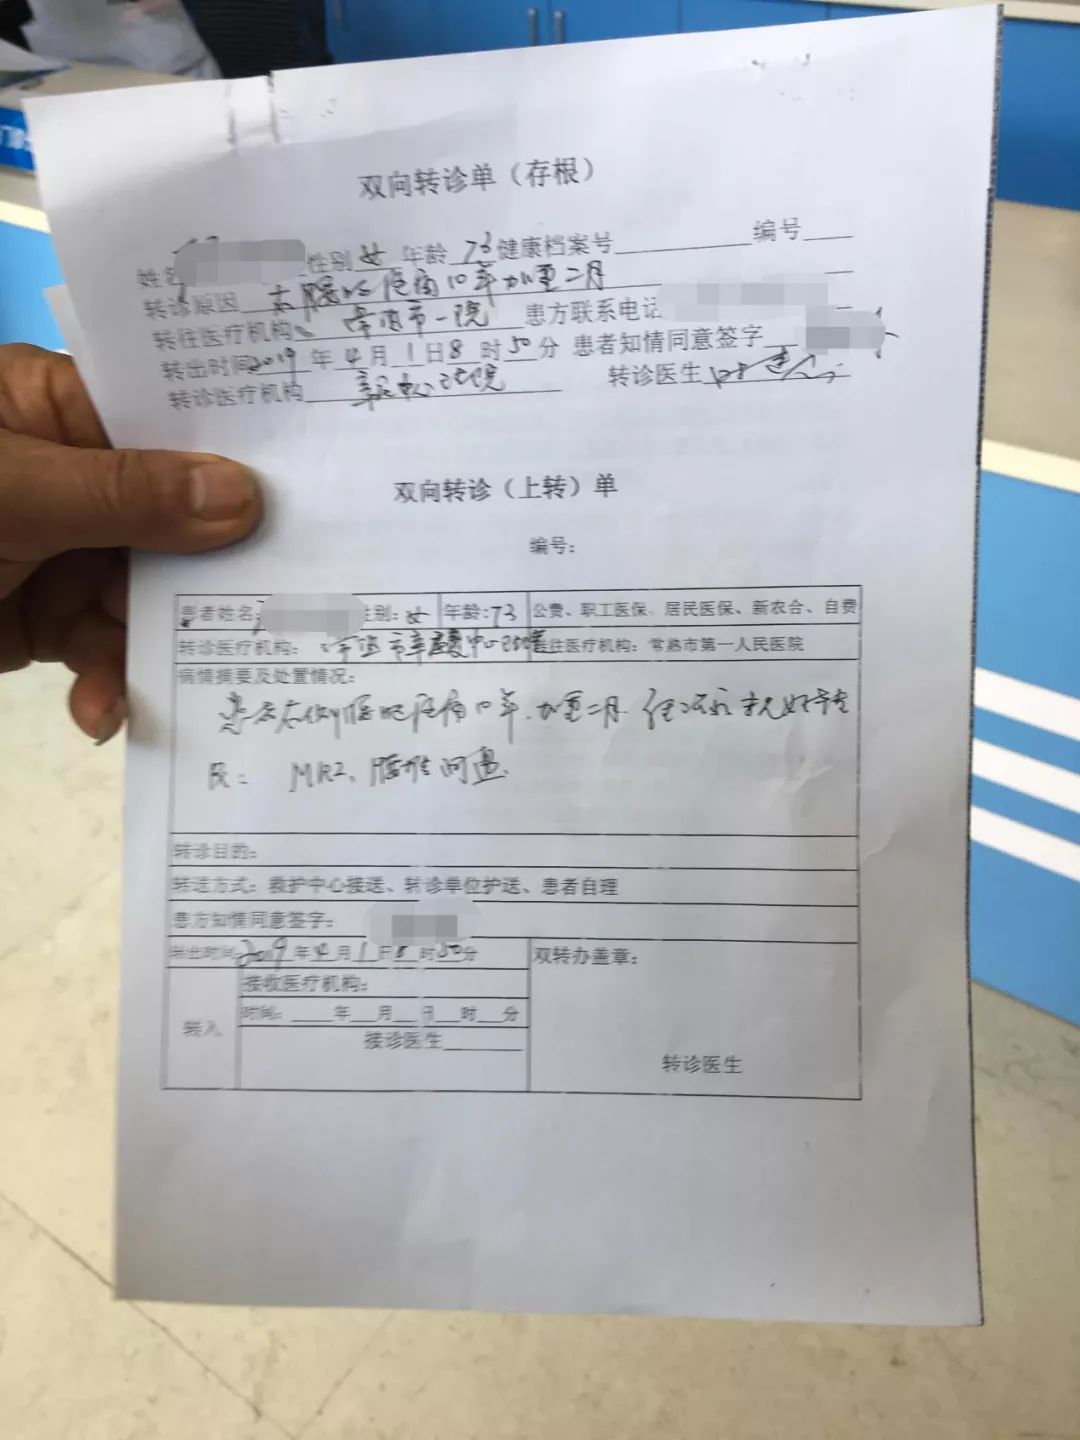 双向转诊单（存根）
姓名 性别 女 年龄 73 健康档案号 编号
转诊原因 右腰 疼痛10年加重二月
转往医疗机构 常熟市一院 患方联系电话
转出时间 2019 年 4 月 1 日 8 时 50 分 患者知情同意签字
转诊医疗机构 转诊医生
双向转诊（上转）单
编号：
患者姓名： 性别：女 年龄：73 公费、职工医保、居民医保、新农合、自费
转诊医疗机构：常熟市辛 中心 转往医疗机构：常熟市第一人民医院
病情摘要及处置情况：
患者右侧腰 疼痛10年，加重二月 好转
MRI、腰椎
转诊目的：
转送方式：救护中心接送、转诊单位护送、患者自理
患方知情同意签字：
转出时间：2019 年 4 月 1 日 8 时 50 分 双转办盖章：
转入 接收医疗机构：
时间： 年 月 日 时 分
接诊医生
转诊医生